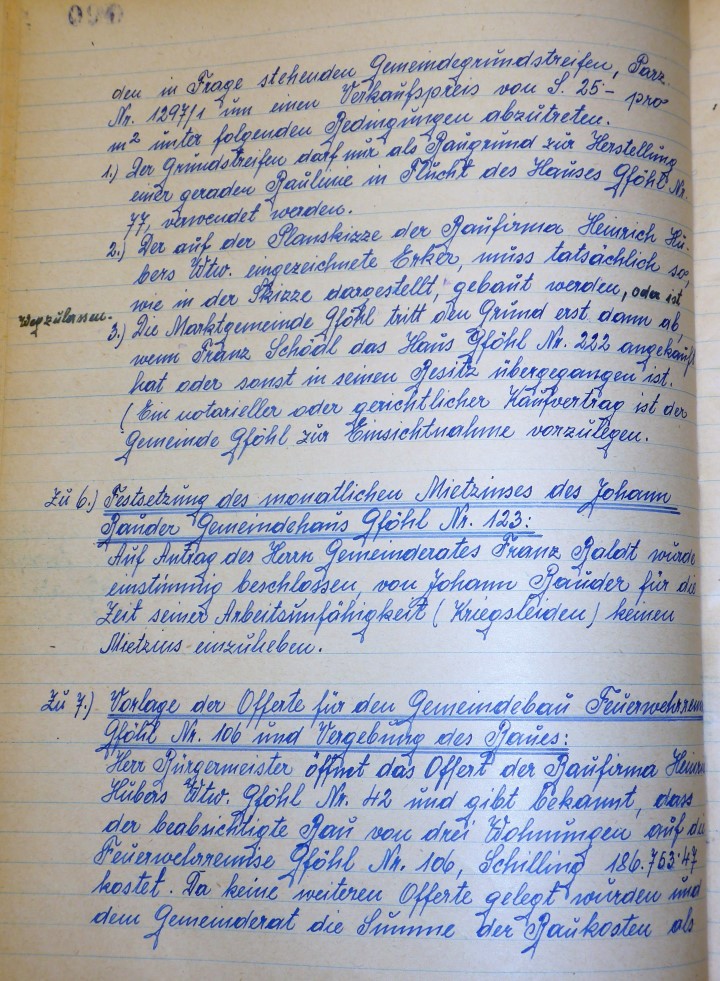 090
den in Frage stehenden Gemeindegrundstreifen, Parz.
Nr. 1297/1 um einen Verkaufspreis von S. 25- pro
m² unter folgenden Bedingungen abzutreten.
1.) Der Grundstreifen darf nur als Baugrund zur Herstellung
einer geraden Baulinie in Flucht des Hauses Gföhl Nr.
77, verwendet werden.
2.) Der auf der Planskizze der Baufirma Heinrich Hu-
bers Wtw. eingezeichnete Erker, muss tatsächlich so,
wie in der Skizze dargestellt, gebaut werden, oder ist
wegzulassen.
3.) Die Marktgemeinde Gföhl tritt den Grund erst dann ab,
wenn Franz Schödl das Haus Gföhl Nr. 222 angekauft
hat oder sonst in seinen Besitz übergegangen ist.
(Ein notarieller oder gerichtlicher Kaufvertrag ist der
Gemeinde Gföhl zur Einsichtnahme vorzulegen.
Zu 6.) Festsetzung des monatlichen Mietzinses des Johann
Bauder Gemeindehaus Gföhl Nr. 123:
Auf Antrag des Herrn Gemeinderates Franz Baldt wurde
einstimmig beschlossen, von Johann Bauder für die
Zeit seiner Arbeitsunfähigkeit (Kriegsleiden) keinen
Mietzins einzuheben.
Zu 7.) Vorlage der Offerte für den Gemeindebau Feuerwehrrem
Gföhl Nr. 106 und Vergebung des Baues:
Herr Bürgermeister öffnet das Offert der Baufirma Heinr
Hubers Wtw. Gföhl Nr. 42 und gibt bekannt, dass
der beabsichtigte Bau von drei Wohnungen auf die
Feuerwehrremise Gföhl Nr. 106, Schilling 186.753.47
kostet. Da keine weiteren Offerte gelegt wurden und
dem Gemeinderat die Summe der Baukosten als